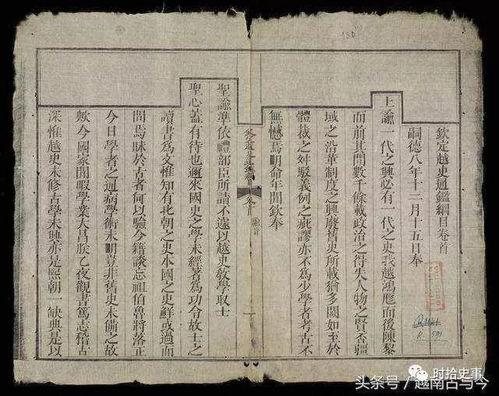 欽定越史通鑑綱目卷首
嗣德八年十二月十五日奉
上諭一代之興必有一代之史我越鴻厖而後陳黎
而前其間數千餘載政治之得失人物之賢否疆
域之沿革制度之興廢舊史所載猶多闕如至於
體裁之舛駁義例之疵謬亦不為少學者考古不
無憾焉明命年間欽奉
聖諭準依禮部臣所請不遠以越史敎學取士
聖心蓋有待也邇來國史之學未經著為功令故士之
讀書為文惟知有北朝之史本國之史鮮或過而
問焉昧於古者何以驗今籍談忘祖伯魯將落正
今日學者之通病學術未明豈非舊史未備之故
歟今國家閒暇學業大昌朕乙夜觀書篤志稽古
深惟越史未修古學未興亦是熙朝一缺典是以
时拾史事
头条号 / 越南古与今